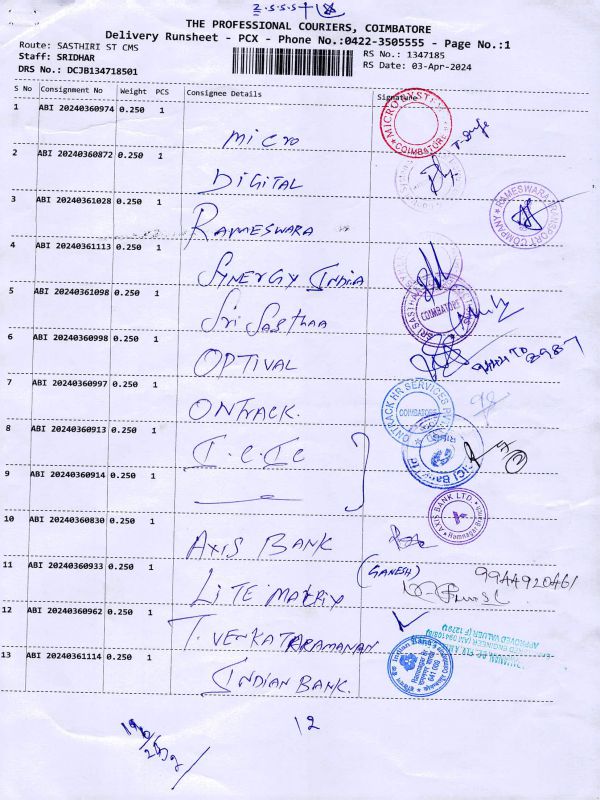 THE PROFESSIONAL COURIERS, COIMBATORE
Delivery Runsheet - PCX - Phone No.:0422-3505555 - Page No.:1
Route: SASTHIRI ST CMS
RS No.: 1347185
Staff: SRIDHAR
RS Date: 03-Apr-2024
DRS No.: DCJB134718501
S No Consignment No Weight PCS Consignee Details Signature
1 ABI 20240360974 0.250 1 Micro
COIMBATORE
2 ABI 20240360872 0.250 1 DIGITAL
3 ABI 20240361028 0.250 1 RAMESWARA
RAMESWARA TRANSPORT COMPANY
4 ABI 20240361113 0.250 1 SYNERGY INDIA
5 ABI 20240361098 0.250 1 Sri Sasthaa
SRI SASTHAA COIMBATORE
6 ABI 20240360998 0.250 1 OPTIVAL
7 ABI 20240360997 0.250 1 ONTRACK.
ONTRACK HR SERVICES COIMBATORE
8 ABI 20240360913 0.250 1 I.C.I.C
ICICI Bank Ltd
9 ABI 20240360914 0.250 1
AXIS BANK LTD. Ramnagar Branch
10 ABI 20240360830 0.250 1 AXIS BANK
11 ABI 20240360933 0.250 1 LITE MATRIX (GANESH) 9944920461
12 ABI 20240360962 0.250 1 T. VENKATARAMANAN
APPROVED VALUER
13 ABI 20240361114 0.250 1 INDIAN BANK.
Indian Bank
641 009
12